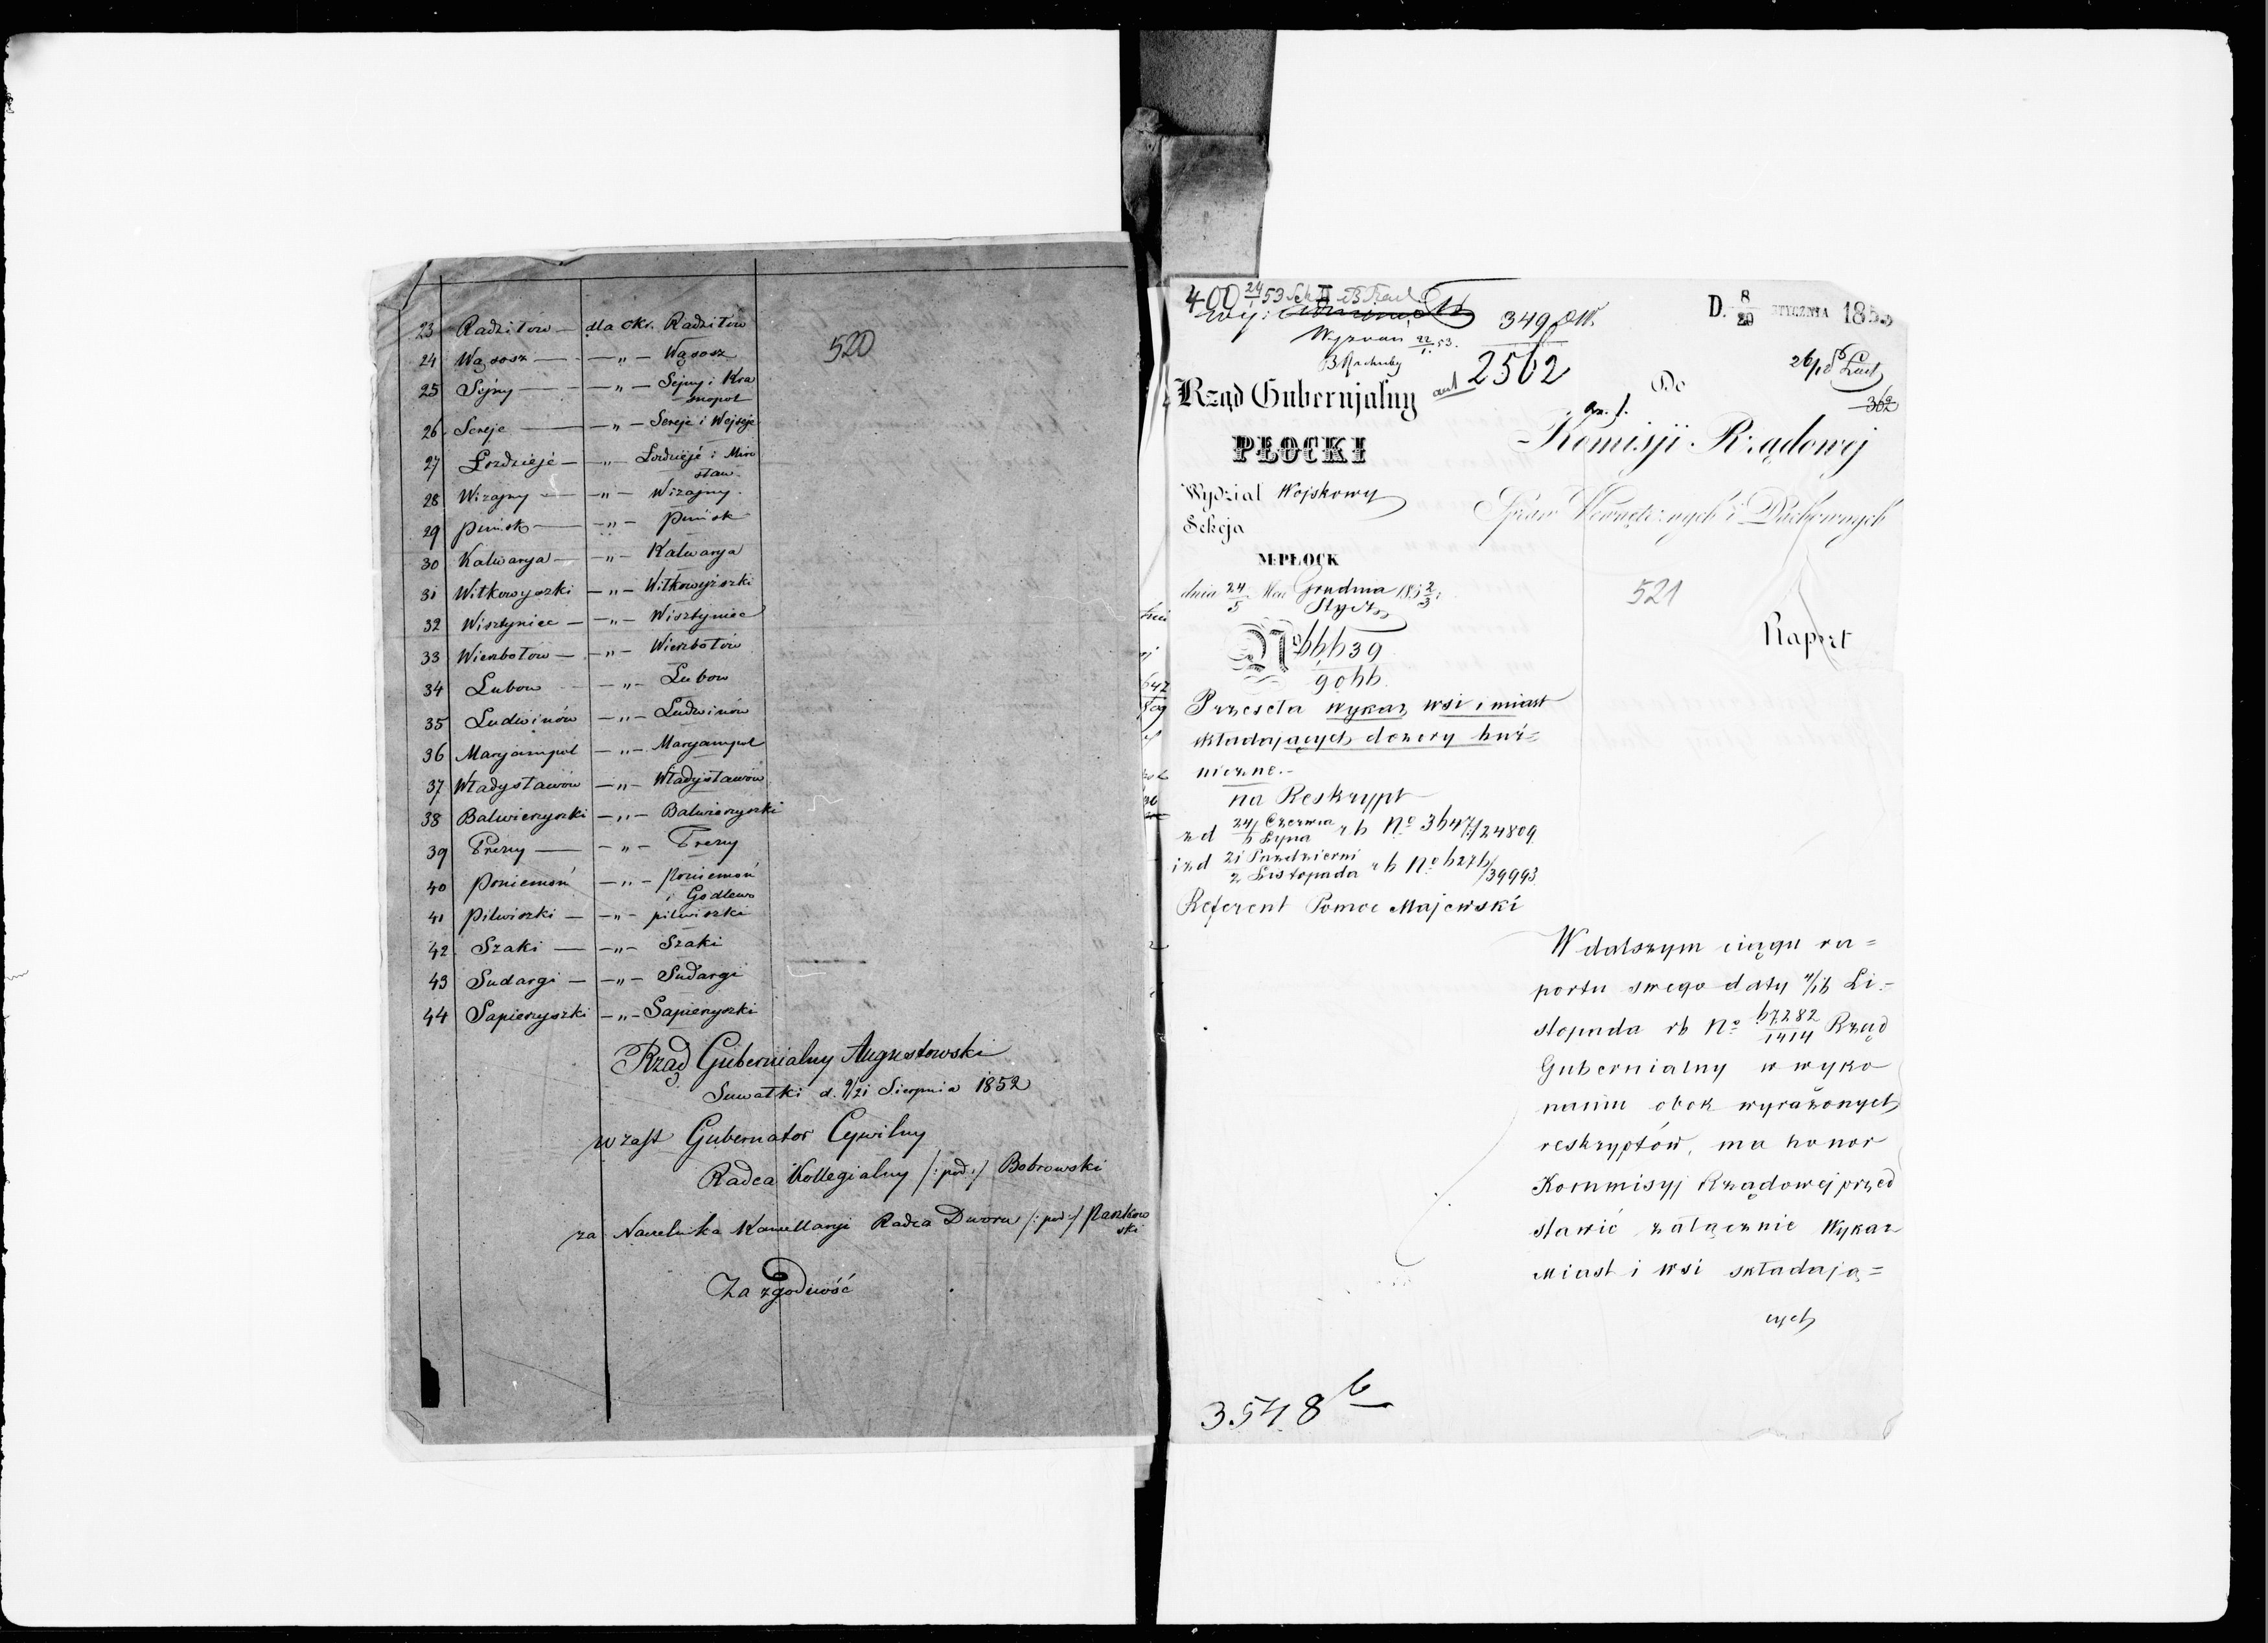 520
23 Radziłów — dla okr. Radziłów
24 Wąsosz — — „ — Wąsosz
25 Sejny — — „ — Sejny i Kra
snopol
26 Sereje — — „ — Sereje i Wejseje
27 Łoździeje — — „ — Łoździeje i Miro
sław
28 Wizajny — — „ — Wizajny
29 Puńsk — — „ — Puńsk
30 Kalwarya — — „ — Kalwarya
31 Wiłkowyszki — „ — Wiłkowyszki
32 Wisztyniec — — „ — Wisztyniec
33 Wierzbołów — — „ — Wierzbołów
34 Lubow — „ — Lubow
35 Ludwinów — „ — Ludwinów
36 Maryampol — „ — Maryampol
37 Władysławów — „ — Władysławów
38 Balwierzyszki — „ — Balwierzyszki
39 Preny — — „ — Preny
40 Poniemoń — „ — Poniemoń
i Godlewo
41 Pilwiszki — — „ — pilwiszki
42 Szaki — — „ — Szaki
43 Sudargi — — „ — Sudargi
44 Sapieżyszki — „ — Sapieżyszki
Rząd Gubernialny Augustowski
Suwałki d. 9/21 Sierpnia 1852
w zast Gubernator Cywilny
Radca Kollegialny /:pod:/ Bobrowski
za Naczelnika Kancellaryi Radca Dworu /:pod:/ Pankow
ski
Za zgodność
400 24/1 53
349
2562
D. 8/20 STYCZNIA 1853
Rząd Gubernjalny
PŁOCKI
Wydział Wojskowy
Sekcja
M: PŁOCK
dnia 24/5 Grudnia 1852/3
Stycz
No 66639
9066
Przesela wykaz wsi i miast
składających dozory buź=
niczne.—
na Reskrypt
z d 24/6 Czerwca
Lipca r b No 3647/24809
i z d 21 Październi
2 Listopada r b No 6276/39993
Referent Pomoc Majewski
Do
Komisji Rządowej
Spraw Wewnętrznych i Duchownych
521
Raport
W dalszym ciągu ra=
portu swego daty 4/16 Li.—
stopada rb No 67282/1414 Rząd
Gubernialny w wyko
naniu obok wyrażonych
reskryptów, ma honor
Kommisyj Rządowej przed
stawić załącznie Wykaz
Miast i wsi składają=
cych
3548 6